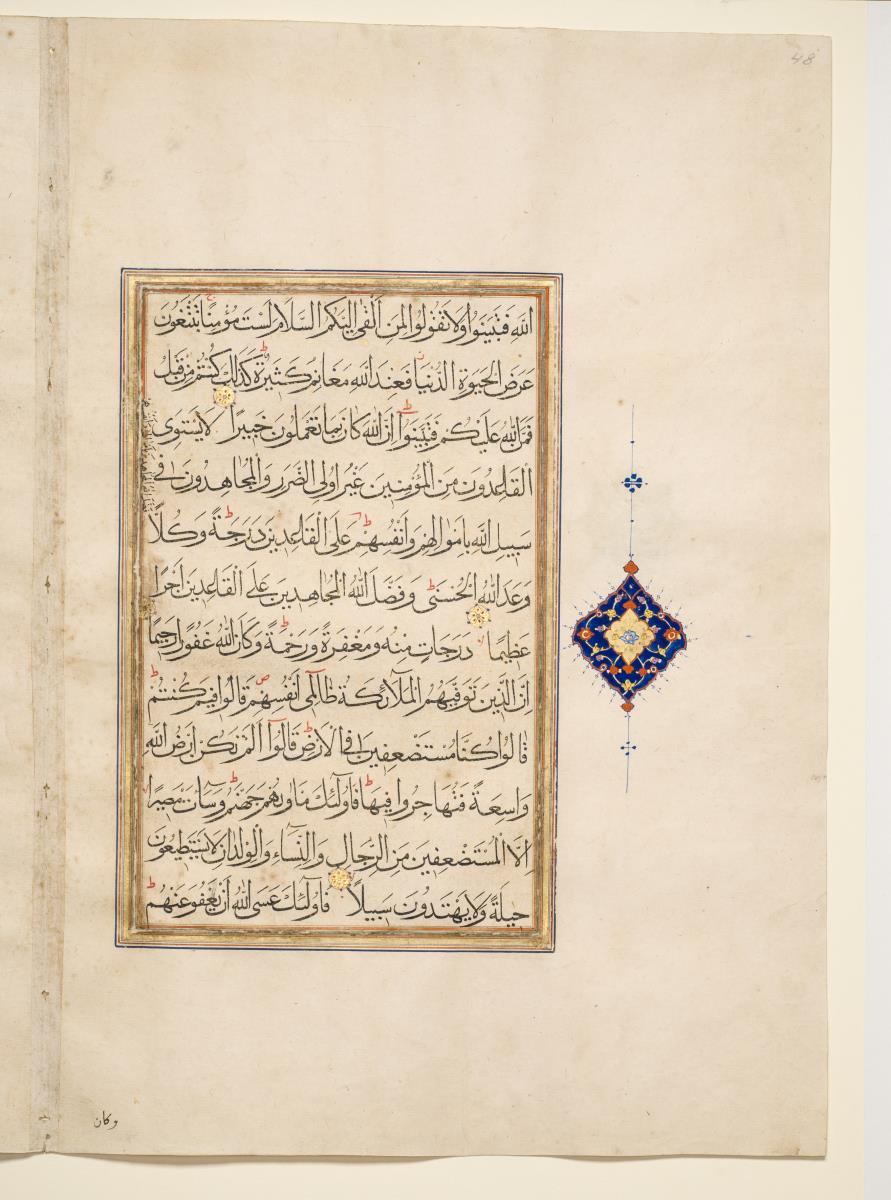 48
اللّٰهِ فَتَبَيَّنُوا وَلَا تَقُولُوا لِمَنْ اَلْقٰى اِلَيْكُمُ السَّلَامَ لَسْتَ مُؤْمِنًا تَبْتَغُونَ
عَرَضَ الْحَيٰوةِ الدُّنْيَا فَعِنْدَ اللّٰهِ مَغَانِمُ كَثِيرَةٌ كَذٰلِكَ كُنْتُمْ مِنْ قَبْلُ
فَمَنَّ اللّٰهُ عَلَيْكُمْ فَتَبَيَّنُوا اِنَّ اللّٰهَ كَانَ بِمَا تَعْمَلُونَ خَبِيرًا لَا يَسْتَوِى
الْقَاعِدُونَ مِنَ الْمُؤْمِنِينَ غَيْرُ اُولِى الضَّرَرِ وَالْمُجَاهِدُونَ فِى
سَبِيلِ اللّٰهِ بِاَمْوَالِهِمْ وَاَنْفُسِهِمْ عَلَى الْقَاعِدِينَ دَرَجَةً وَكُلًّا
وَعَدَ اللّٰهُ الْحُسْنٰى وَفَضَّلَ اللّٰهُ الْمُجَاهِدِينَ عَلَى الْقَاعِدِينَ اَجْرًا
عَظِيمًا دَرَجَاتٍ مِنْهُ وَمَغْفِرَةً وَرَحْمَةً وَكَانَ اللّٰهُ غَفُورًا رَحِيمًا
اِنَّ الَّذِينَ تَوَفّٰيهُمُ الْمَلَآئِكَةُ ظَالِمِى اَنْفُسِهِمْ قَالُوا فِيمَ كُنْتُمْ
قَالُوا كُنَّا مُسْتَضْعَفِينَ فِى الْاَرْضِ قَالُوا اَلَمْ تَكُنْ اَرْضُ اللّٰهِ
وَاسِعَةً فَتُهَاجِرُوا فِيهَا فَاُولٰٓئِكَ مَاْوٰيهُمْ جَهَنَّمُ وَسَآءَتْ مَصِيرًا
اِلَّا الْمُسْتَضْعَفِينَ مِنَ الرِّجَالِ وَالنِّسَآءِ وَالْوِلْدَانِ لَا يَسْتَطِيعُونَ
حِيلَةً وَلَا يَهْتَدُونَ سَبِيلًا فَاُولٰٓئِكَ عَسَى اللّٰهُ اَنْ يَعْفُوَ عَنْهُمْ
وكان